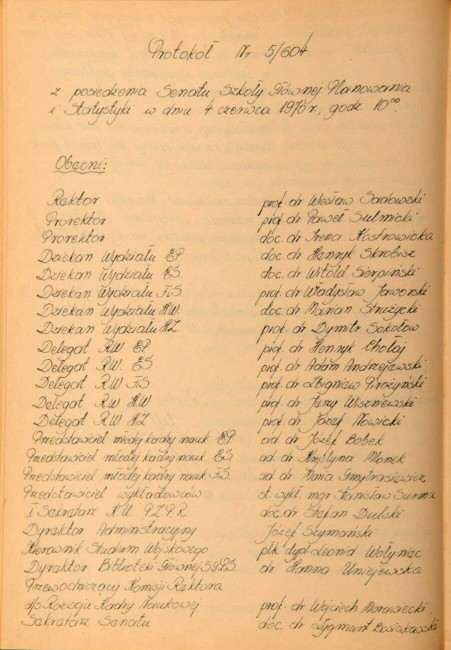 Protokół Nr 5/604
z posiedzenia Senatu Szkoły Głównej Planowania
i Statystyki w dniu 4 czerwca 1976 r., godz. 10⁰⁰.
Obecni:
Rektor prof. dr Wiesław Sadowski
Prorektor prof. dr Paweł Sulmicki
Prorektor doc. dr Irena Kostrowicka
Dziekan Wydziału EP. doc. dr Henryk
Dziekan Wydziału ES doc. dr Witold Sierpiński
Dziekan Wydziału FiS. prof. dr Władysław Jaworski
Dziekan Wydziału H.W. doc. dr Marian Strużycki
Dziekan Wydziału HZ prof. dr Dymitr Sokołow
Delegat R.W. EP prof. dr Henryk Chołaj
Delegat R.W. ES prof. dr Adam Andrzejewski
Delegat R.W. FiS prof. dr Zbigniew Pirożyński
Delegat R.W. H.W prof. dr Jerzy Wiszniewski
Delegat R.W. HZ prof. dr Józef Nowicki
Przedstawiciel młodej kadry nauk. EP. ad. dr Józef Bobek
Przedstawiciel młodej kadry nauk. ES. ad. dr Krystyna Mlonek
Przedstawiciel młodej kadry nauk. FiS. ad. dr Maria
Przedstawiciel wykładowców st. wykł. mgr Stanisław Surma
I Sekretarz K.U. P.Z.P.R. doc. dr Stefan Dulski
Dyrektor Administracyjny Józef Szymański
Kierownik Studium Wojskowego płk dypl. Leonid Wołyniec
Dyrektor Biblioteki Głównej SGPiS dr Hanna Uniejewska
Przewodniczący Komisji Rektora
d/s Rozwoju Kadry Naukowej prof. dr Wojciech Morawiecki
Sekretarz Senatu doc. dr Zygmunt